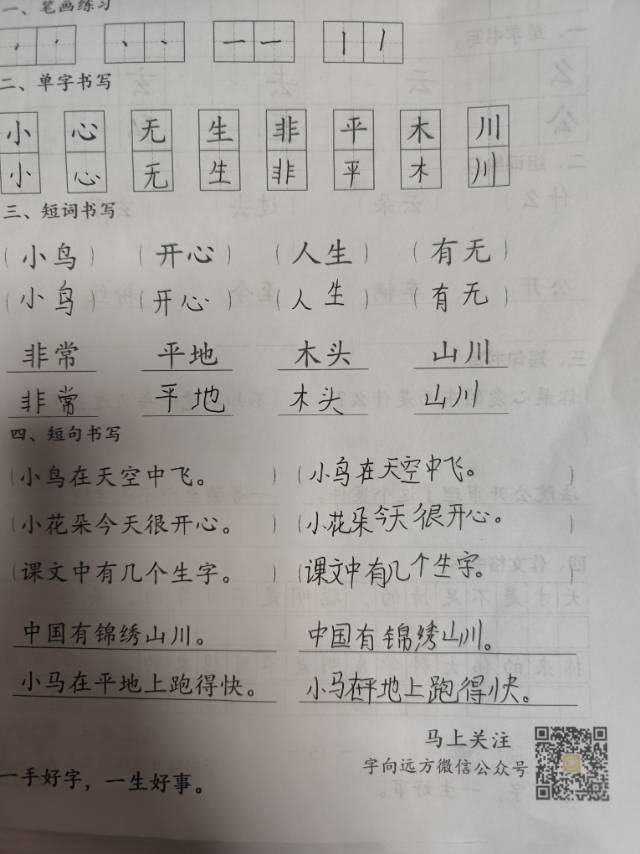 一、笔画练习
二、单字书写
小 心 无 生 非 平 木 川
小 心 无 生 非 平 木 川
三、短词书写
(小鸟) (开心) (人生) (有无)
(小鸟) (开心) (人生) (有无)
非常 平地 木头 山川
非常 平地 木头 山川
四、短句书写
(小鸟在天空中飞。) (小鸟在天空中飞。)
(小花朵今天很开心。) (小花朵今天很开心。)
(课文中有几个生字。) (课文中有几个生字。)
中国有锦绣山川。 中国有锦绣山川。
小马在平地上跑得快。 小马在平地上跑得快。
马上关注
字向远方微信公众号
一手好字，一生好事。